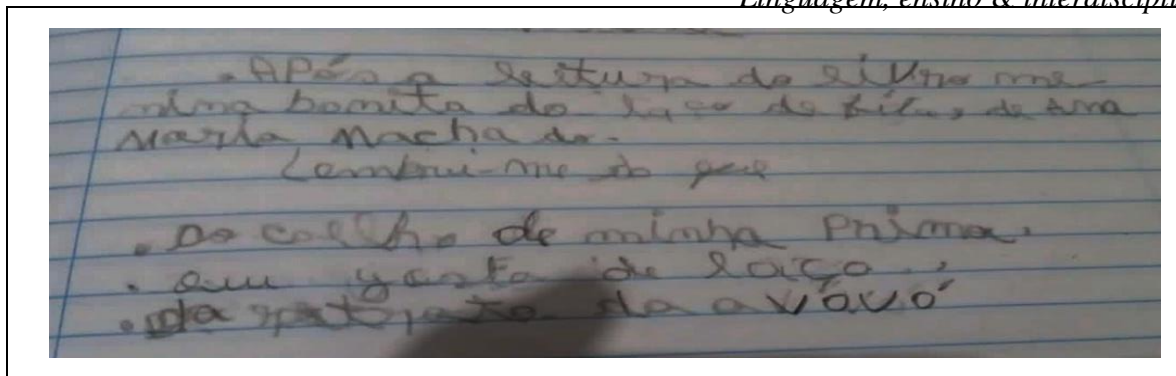 Linguagem, ensino &
. APós a leitura do livro me-
nina bonita do laço de fita, de Ana
Maria Machado.
Lembrei-me do que
. Do coelho de minha Prima.
. Que gosta de laço.
. da da avóvó